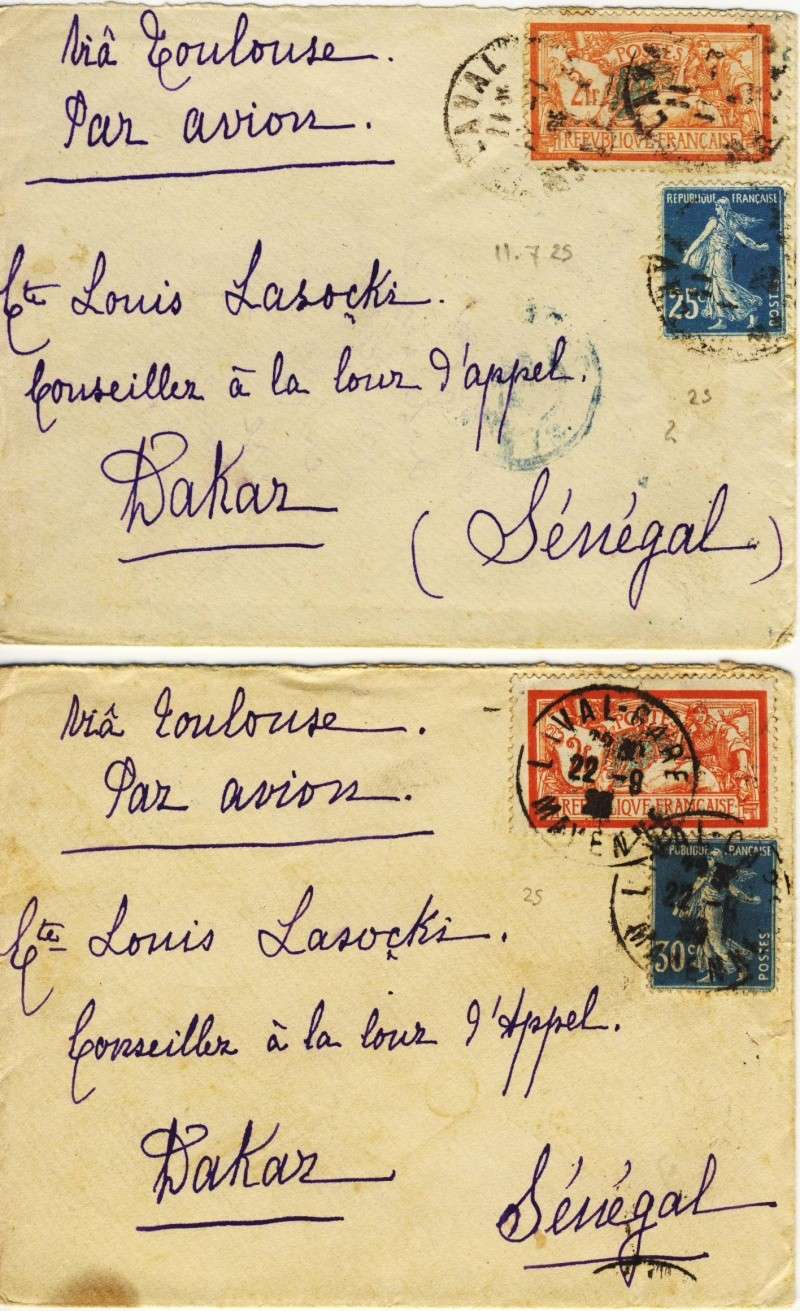 viâ Toulouse.
Par avion.
POSTES
2fr
REPVBLIQVE FRANÇAISE
REPUBLIQUE FRANÇAISE
25c
POSTES
11.7 25
Cte Louis Lasocki.
Conseiller à la Cour d'appel.
25
2
Dakar
(Sénégal)
viâ Toulouse.
Par avion.
LAVAL-GARE
22 -8
MAYENNE
2fr
REPVBLIQVE FRANÇAISE
REPUBLIQUE FRANÇAISE
22
30c
POSTES
MAYENNE
25
Cte Louis Lasocki.
Conseiller à la Cour d'Appel.
Dakar
Sénégal